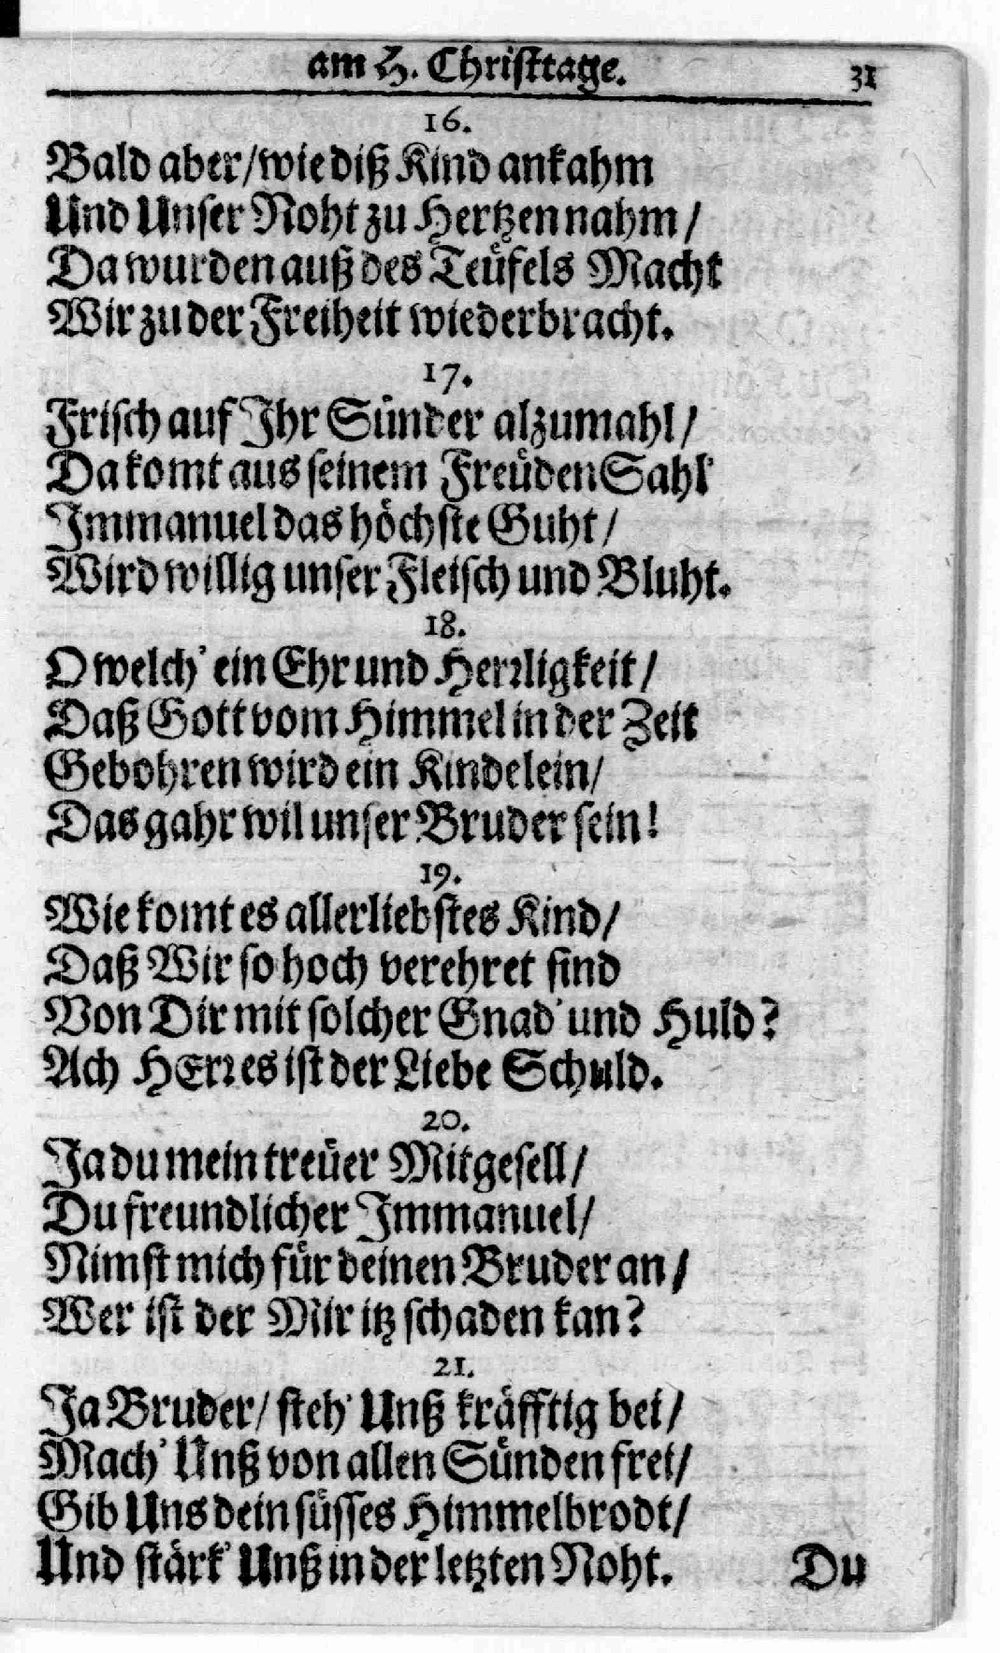 am H. Christtage. 31
16.
Bald aber/wie diß Kind ankahm
Und Unser Noht zu Hertzen nahm/
Da wurden auß des Teüfels Macht
Wir zu der Freiheit wiederbracht.
17.
Frisch auf Ihr Sünder alzumahl/
Da komt aus seinem Freüden Sahl
Immanuel das höchste Guht/
Wird willig unser Fleisch und Bluht.
18.
O welch' ein Ehr und Herrligkeit/
Daß Gott vom Himmel in der Zeit
Gebohren wird ein Kindelein/
Das gahr wil unser Bruder sein!
19.
Wie komt es allerliebstes Kind/
Daß Wir so hoch verehret sind
Von Dir mit solcher Gnad' und Huld?
Ach HErr es ist der Liebe Schuld.
20.
Ja du mein treüer Mitgesell/
Du freundlicher Immanuel/
Nimst mich für deinen Bruder an/
Wer ist der Mir itz schaden kan?
21.
Ja Bruder/ steh' Unß kräfftig bei/
Mach' Unß von allen Sünden frei/
Gib Uns dein süsses Himmelbrodt/
Und stärk' Unß in der letzten Noht. Du